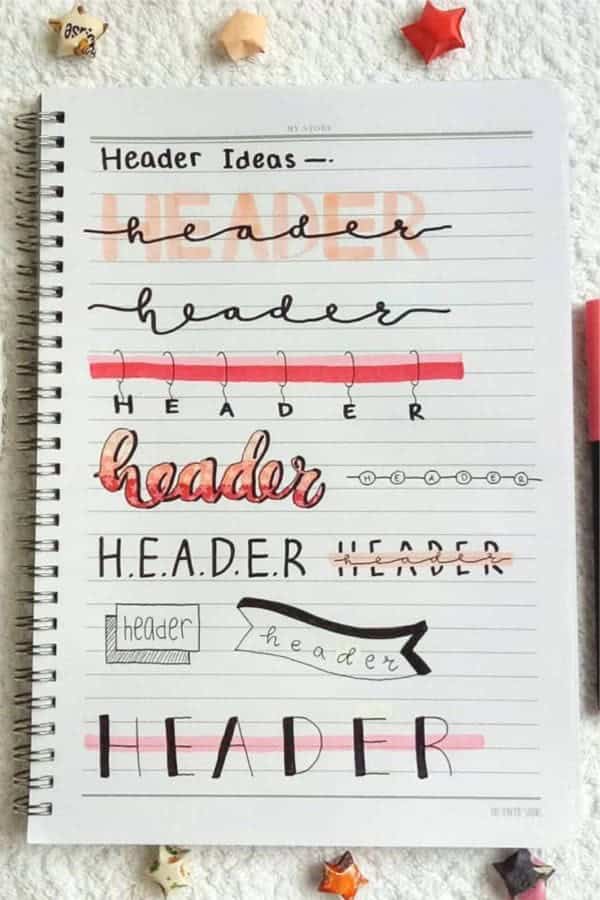 MY STORY
Header Ideas —.
HEADER
header
header
HEADER
header
HEADER
H.E.A.D.E.R
HEADER
header
header
header
HEADER